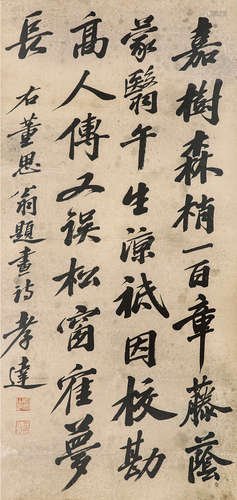 嘉樹森梢一百章藤蔭
蒙翳午生涼祗因校勘
高人傳又误松窗在夢
長
右董思翁題畫詩孝達